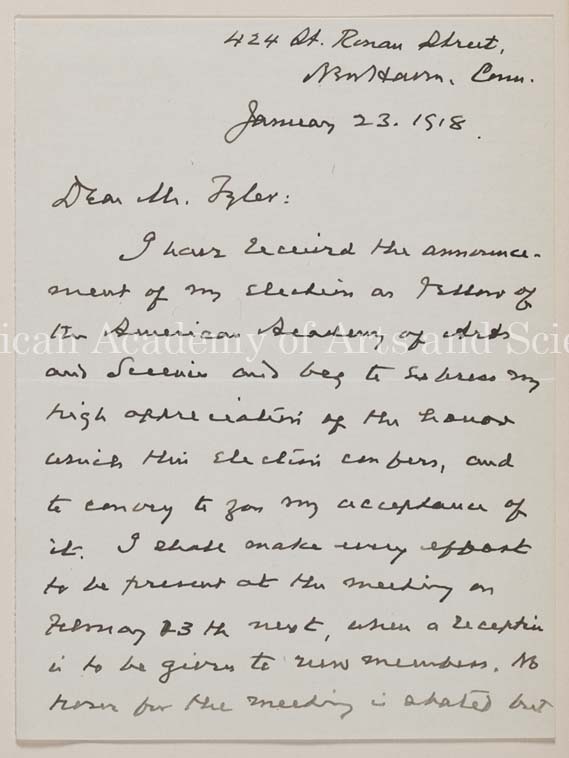 424 St. Ronan Street,
New Haven, Conn.
January 23. 1918.
Dear Mr. Tyler:
I have received the announce-
ment of my election as Fellow of
the American Academy of Arts
ican Academy of Arts and Scie
and Sciences and beg to express my
high appreciation of the honor
which this election confers, and
to convey to you my acceptance of
it. I shall make every effort
to be present at the meeting on
February 13th next, when a reception
is to be given to new members. No
hour for the meeting is stated but